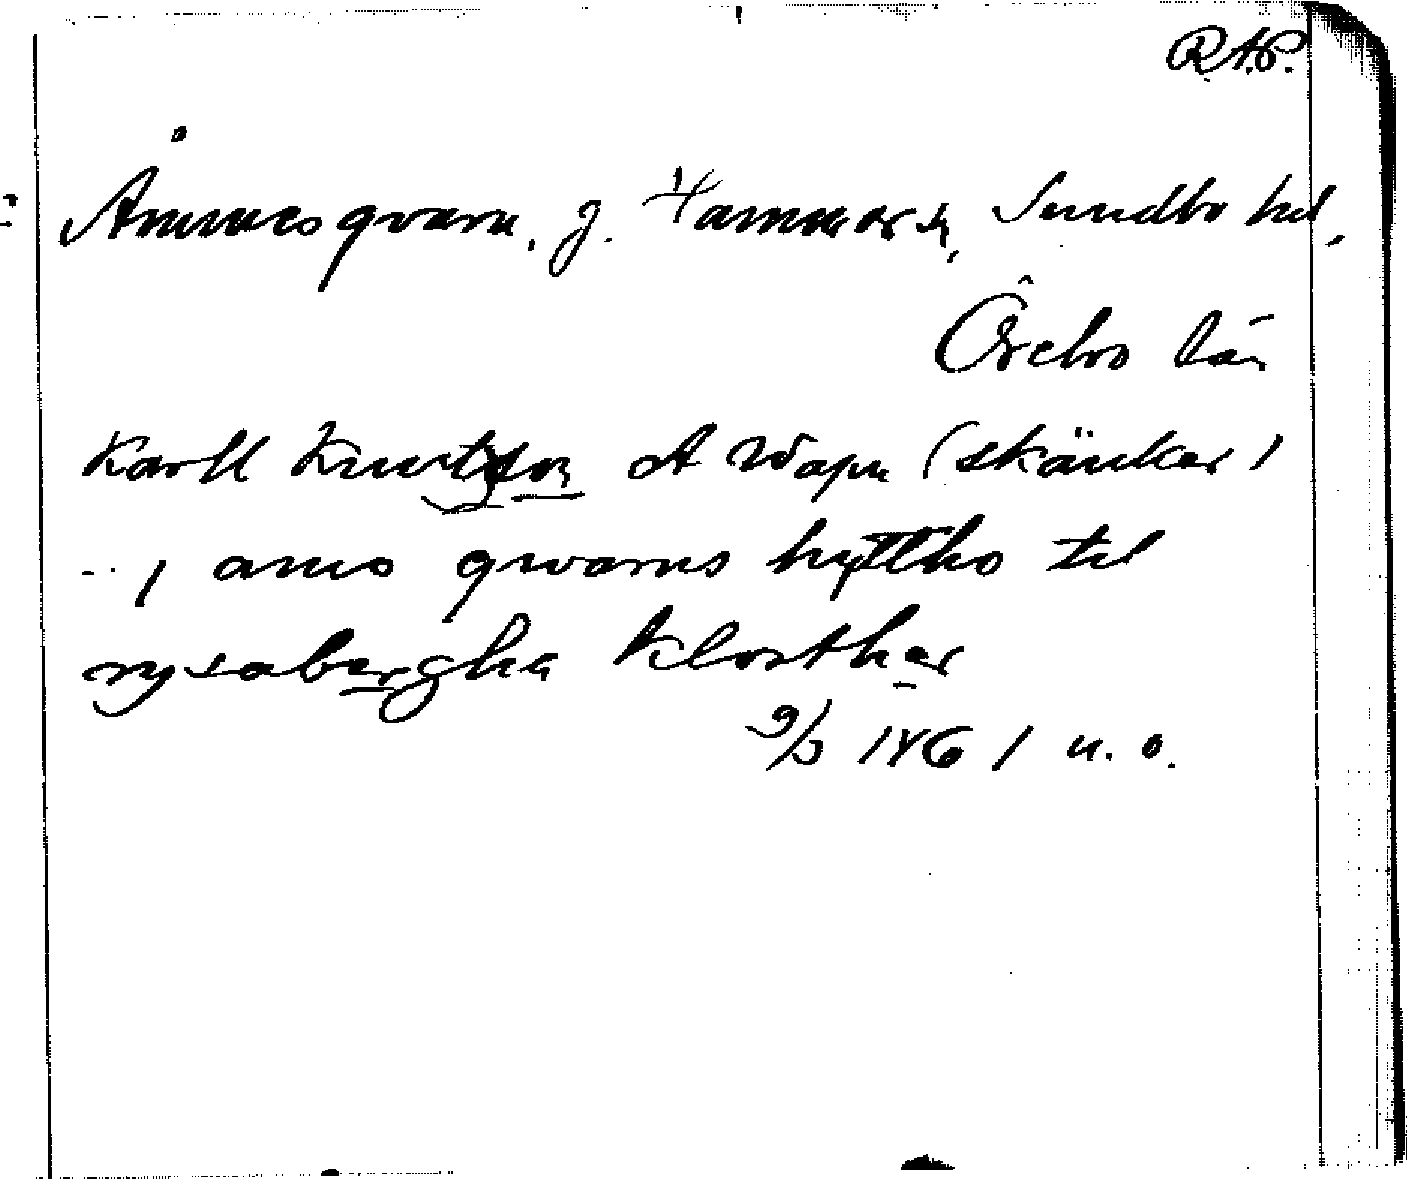 R.A.P.
Åmmesqvarn, g. Hammars sn, Sundbo hd,
Örebro län
Karll Knwtson A Wapn (skänker)
-- / amo qwarns hyttho til
rysabergha Klosther
9/3 1461 u. o.